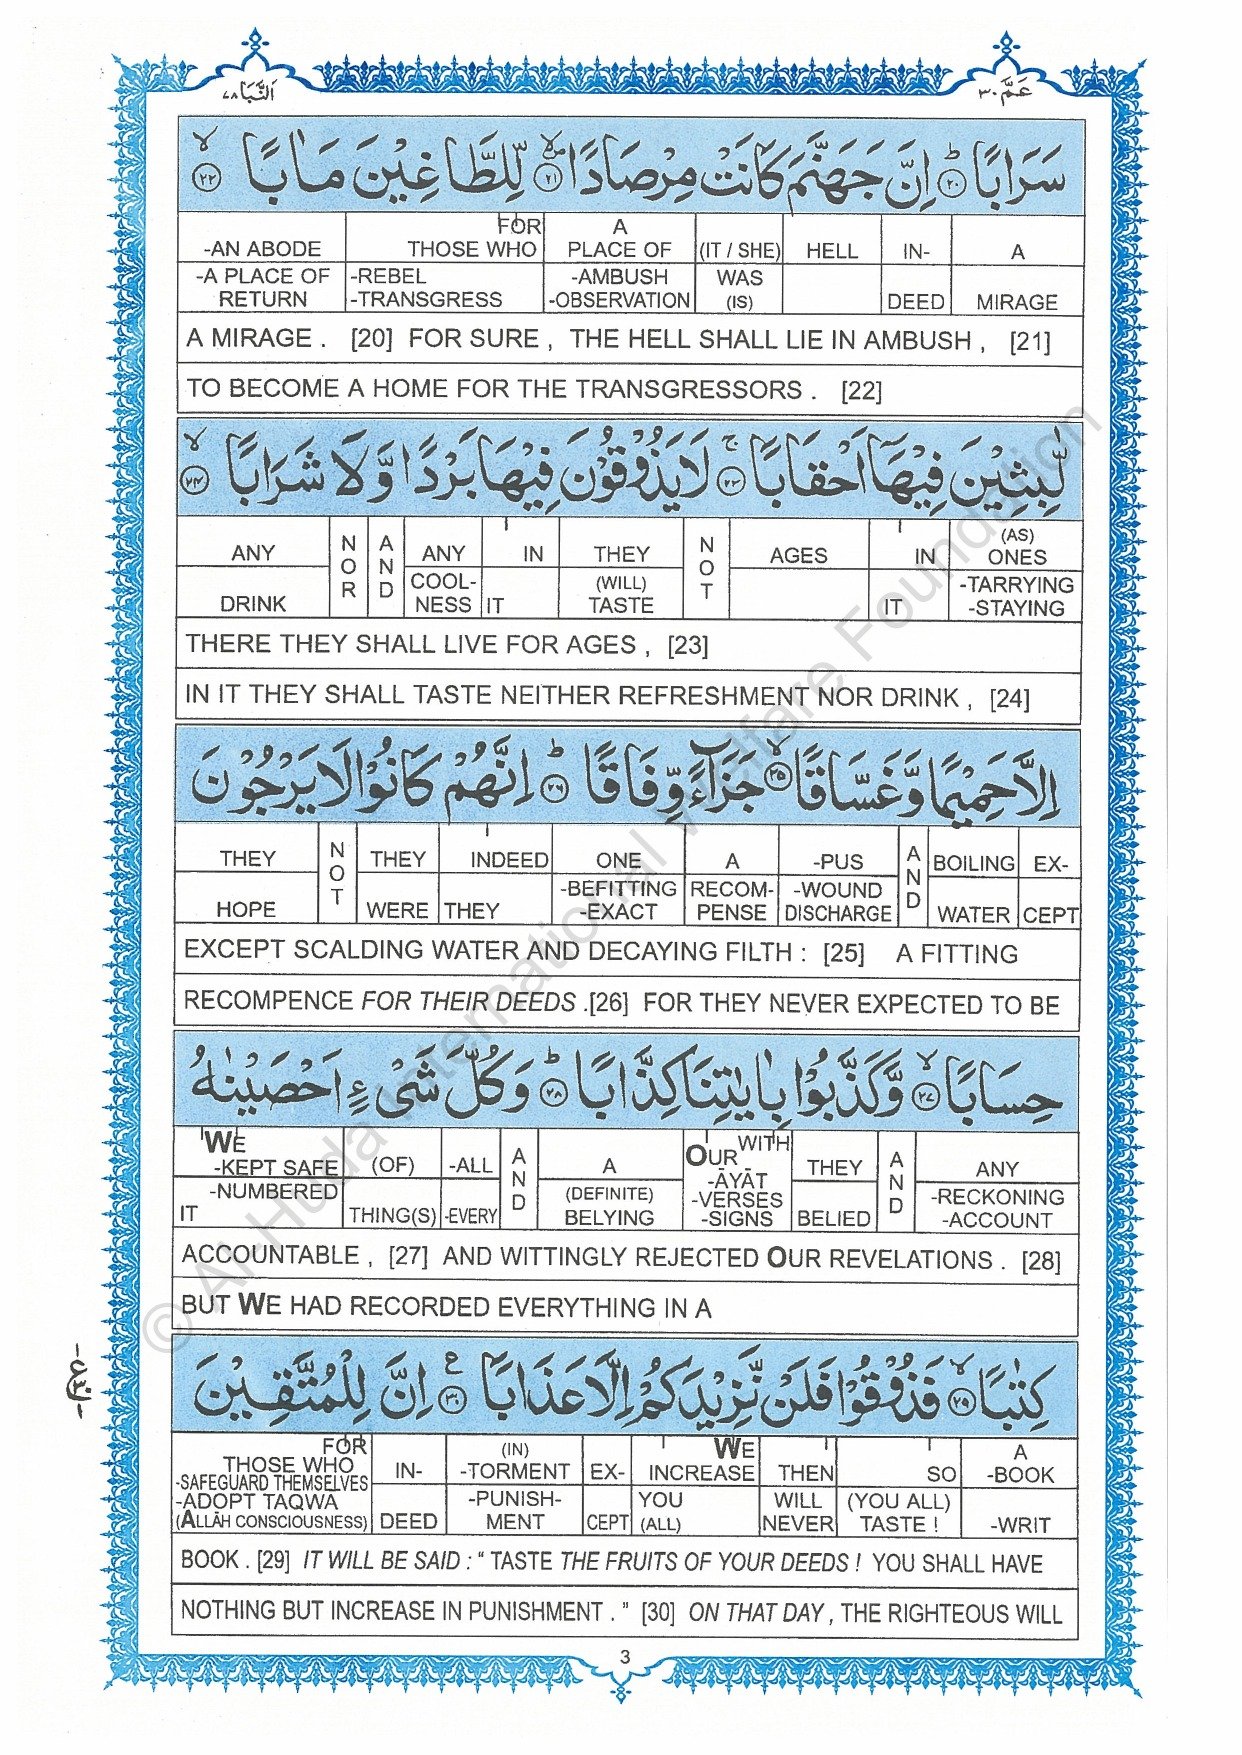 عَمَّ ٣٠
اَلنَّبَا ٧٨
سَرَابًا ؕ﴿٢٠﴾ اِنَّ جَهَنَّمَ كَانَتْ مِرْصَادًا ۙ﴿٢١﴾ لِّلطَّاغِيْنَ مَاٰبًا ۙ﴿٢٢﴾
-AN ABODE | FOR THOSE WHO | A PLACE OF | (IT / SHE) | HELL | IN- | A
-A PLACE OF RETURN | -REBEL -TRANSGRESS | -AMBUSH -OBSERVATION | WAS (IS) | DEED | MIRAGE
A MIRAGE . [20] FOR SURE , THE HELL SHALL LIE IN AMBUSH , [21]
TO BECOME A HOME FOR THE TRANSGRESSORS . [22]
لّٰبِثِيْنَ فِيْهَآ اَحْقَابًا ۚ﴿٢٣﴾ لَا يَذُوْقُوْنَ فِيْهَا بَرْدًا وَّلَا شَرَابًا ۙ﴿٢٤﴾
ANY | NOR | AND | ANY | IN | THEY | NOT | AGES | IN | (AS) ONES
DRINK | COOL-NESS | IT | (WILL) TASTE | IT | -TARRYING -STAYING
THERE THEY SHALL LIVE FOR AGES , [23]
IN IT THEY SHALL TASTE NEITHER REFRESHMENT NOR DRINK , [24]
اِلَّا حَمِيْمًا وَّغَسَّاقًا ۙ﴿٢٥﴾ جَزَآءً وِّفَاقًا ؕ﴿٢٦﴾ اِنَّهُمْ كَانُوْا لَا يَرْجُوْنَ
THEY | NOT | THEY | INDEED | ONE | A | -PUS | AND | BOILING | EX-
HOPE | WERE | THEY | -BEFITTING -EXACT | RECOM-PENSE | -WOUND DISCHARGE | WATER | CEPT
EXCEPT SCALDING WATER AND DECAYING FILTH : [25] A FITTING
RECOMPENCE FOR THEIR DEEDS .[26] FOR THEY NEVER EXPECTED TO BE
حِسَابًا ۙ﴿٢٧﴾ وَّكَذَّبُوْا بِاٰيٰتِنَا كِذَّابًا ؕ﴿٢٨﴾ وَكُلَّ شَىْءٍ اَحْصَيْنٰهُ
WE -KEPT SAFE | (OF) | -ALL | AND | A | OUR WITH | THEY | AND | ANY
-NUMBERED IT | THING(S) | -EVERY | (DEFINITE) BELYING | -ĀYĀT -VERSES -SIGNS | BELIED | -RECKONING -ACCOUNT
ACCOUNTABLE , [27] AND WITTINGLY REJECTED OUR REVELATIONS . [28]
BUT WE HAD RECORDED EVERYTHING IN A
كِتٰبًا ۙ﴿٢٩﴾ فَذُوْقُوْا فَلَنْ نَّزِيْدَكُمْ اِلَّا عَذَابًا ۧ﴿٣٠﴾ اِنَّ لِلْمُتَّقِيْنَ
FOR THOSE WHO | IN- | (IN) -TORMENT | EX- | WE INCREASE | THEN | SO | A -BOOK
-SAFEGUARD THEMSELVES -ADOPT TAQWA (ALLĀH CONSCIOUSNESS) | DEED | -PUNISH-MENT | CEPT | YOU (ALL) | WILL NEVER | (YOU ALL) TASTE ! | -WRIT
BOOK . [29] IT WILL BE SAID : “ TASTE THE FRUITS OF YOUR DEEDS ! YOU SHALL HAVE
NOTHING BUT INCREASE IN PUNISHMENT . ” [30] ON THAT DAY , THE RIGHTEOUS WILL
3
© Al-Huda International Welfare Foundation